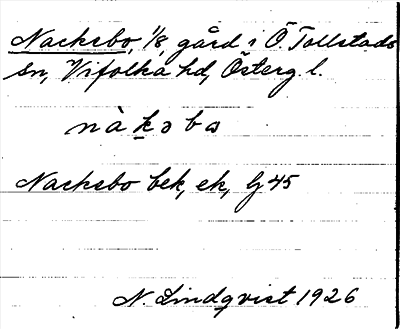 Nacksbo, 1/8, gård i Ö. Tollstads
sn, Vifolka hd, Österg. l.
nàkəbω
Nacksbo bek, ek, Gj 45
N. Lindqvist 1926